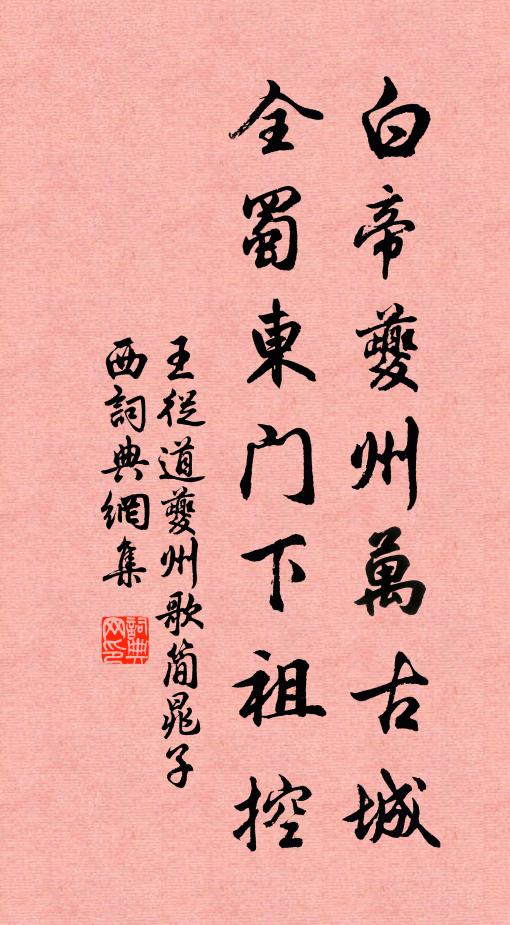 白帝夔州萬古城
全蜀東门下祖控
王從道夔州歌简晁子
西詞典網集
詞典
网印